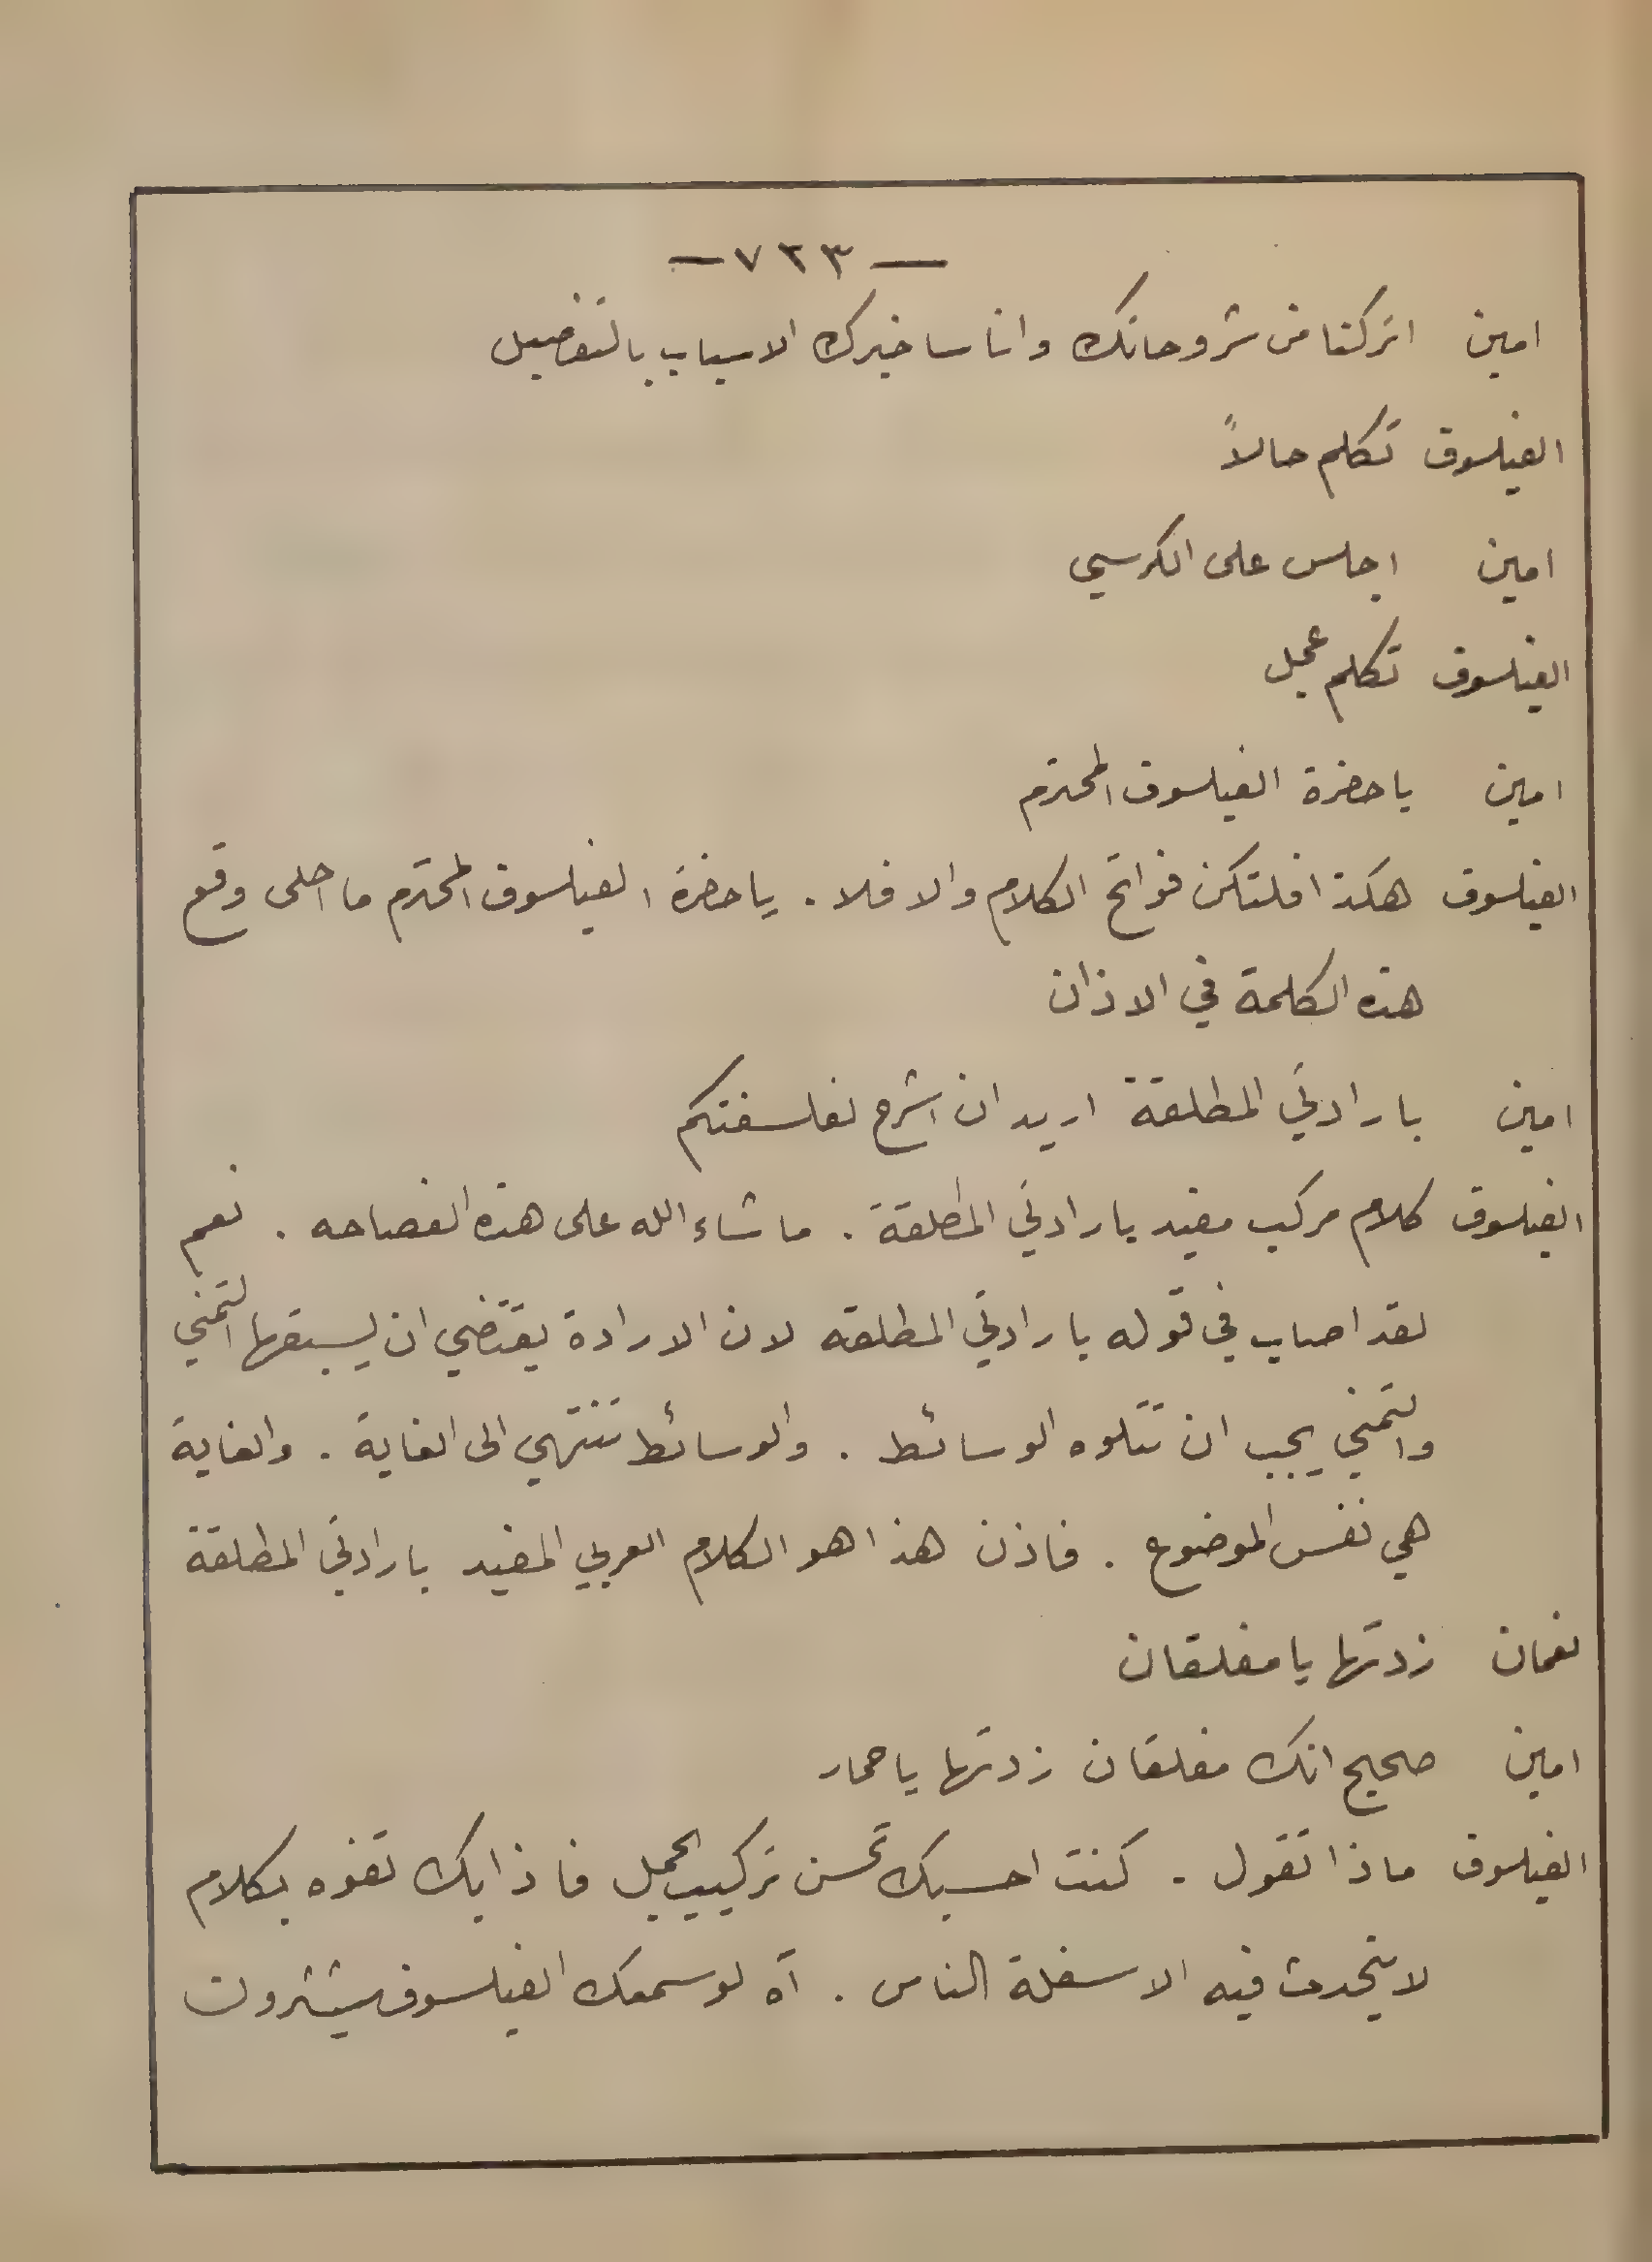 — ٧٢٣ —
امين اتركنا من شروحاتك وانا ساخبرك الاسباب بالتفصيل
الفيلسوف تكلم حالاً
امين اجلس على الكرسي
الفيلسوف تكلم عجل
امين يا حضرة الفيلسوف المحترم
الفيلسوف هكذا فلتكن فواتح الكلام والا فلا . يا حضرة الفيلسوف المحترم ما احلى وقع
هذه الكلمة في الاذان
امين بارادتي المطلقة اريد ان اشرح لفلسفتكم
الفيلسوف كلام مركب مفيد بارادتي المطلقة . ما شاء الله على هذه الفصاحه . نعم
لقد اصاب في قوله بارادتي المطلقه لان الارادة يقتضي ان يسبقها التمني
والتمني يجب ان تتلوه الوسائط . والوسائط تنتهي الى الغاية . والغاية
هي نفس الموضوع . فاذن هذا هو الكلام العربي المفيد بارادتي المطلقة
نعمان زدتها يا مفلقان
امين صحيح انك مفلقان زدتها يا حمار
الفيلسوف ماذا تقول . كنت احسبك تحسن تركيب الجمل فاذا بك تفوه بكلام
لا يتحدث فيه الا سفلة الناس . آه لو سمعك الفيلسوف شيشرون